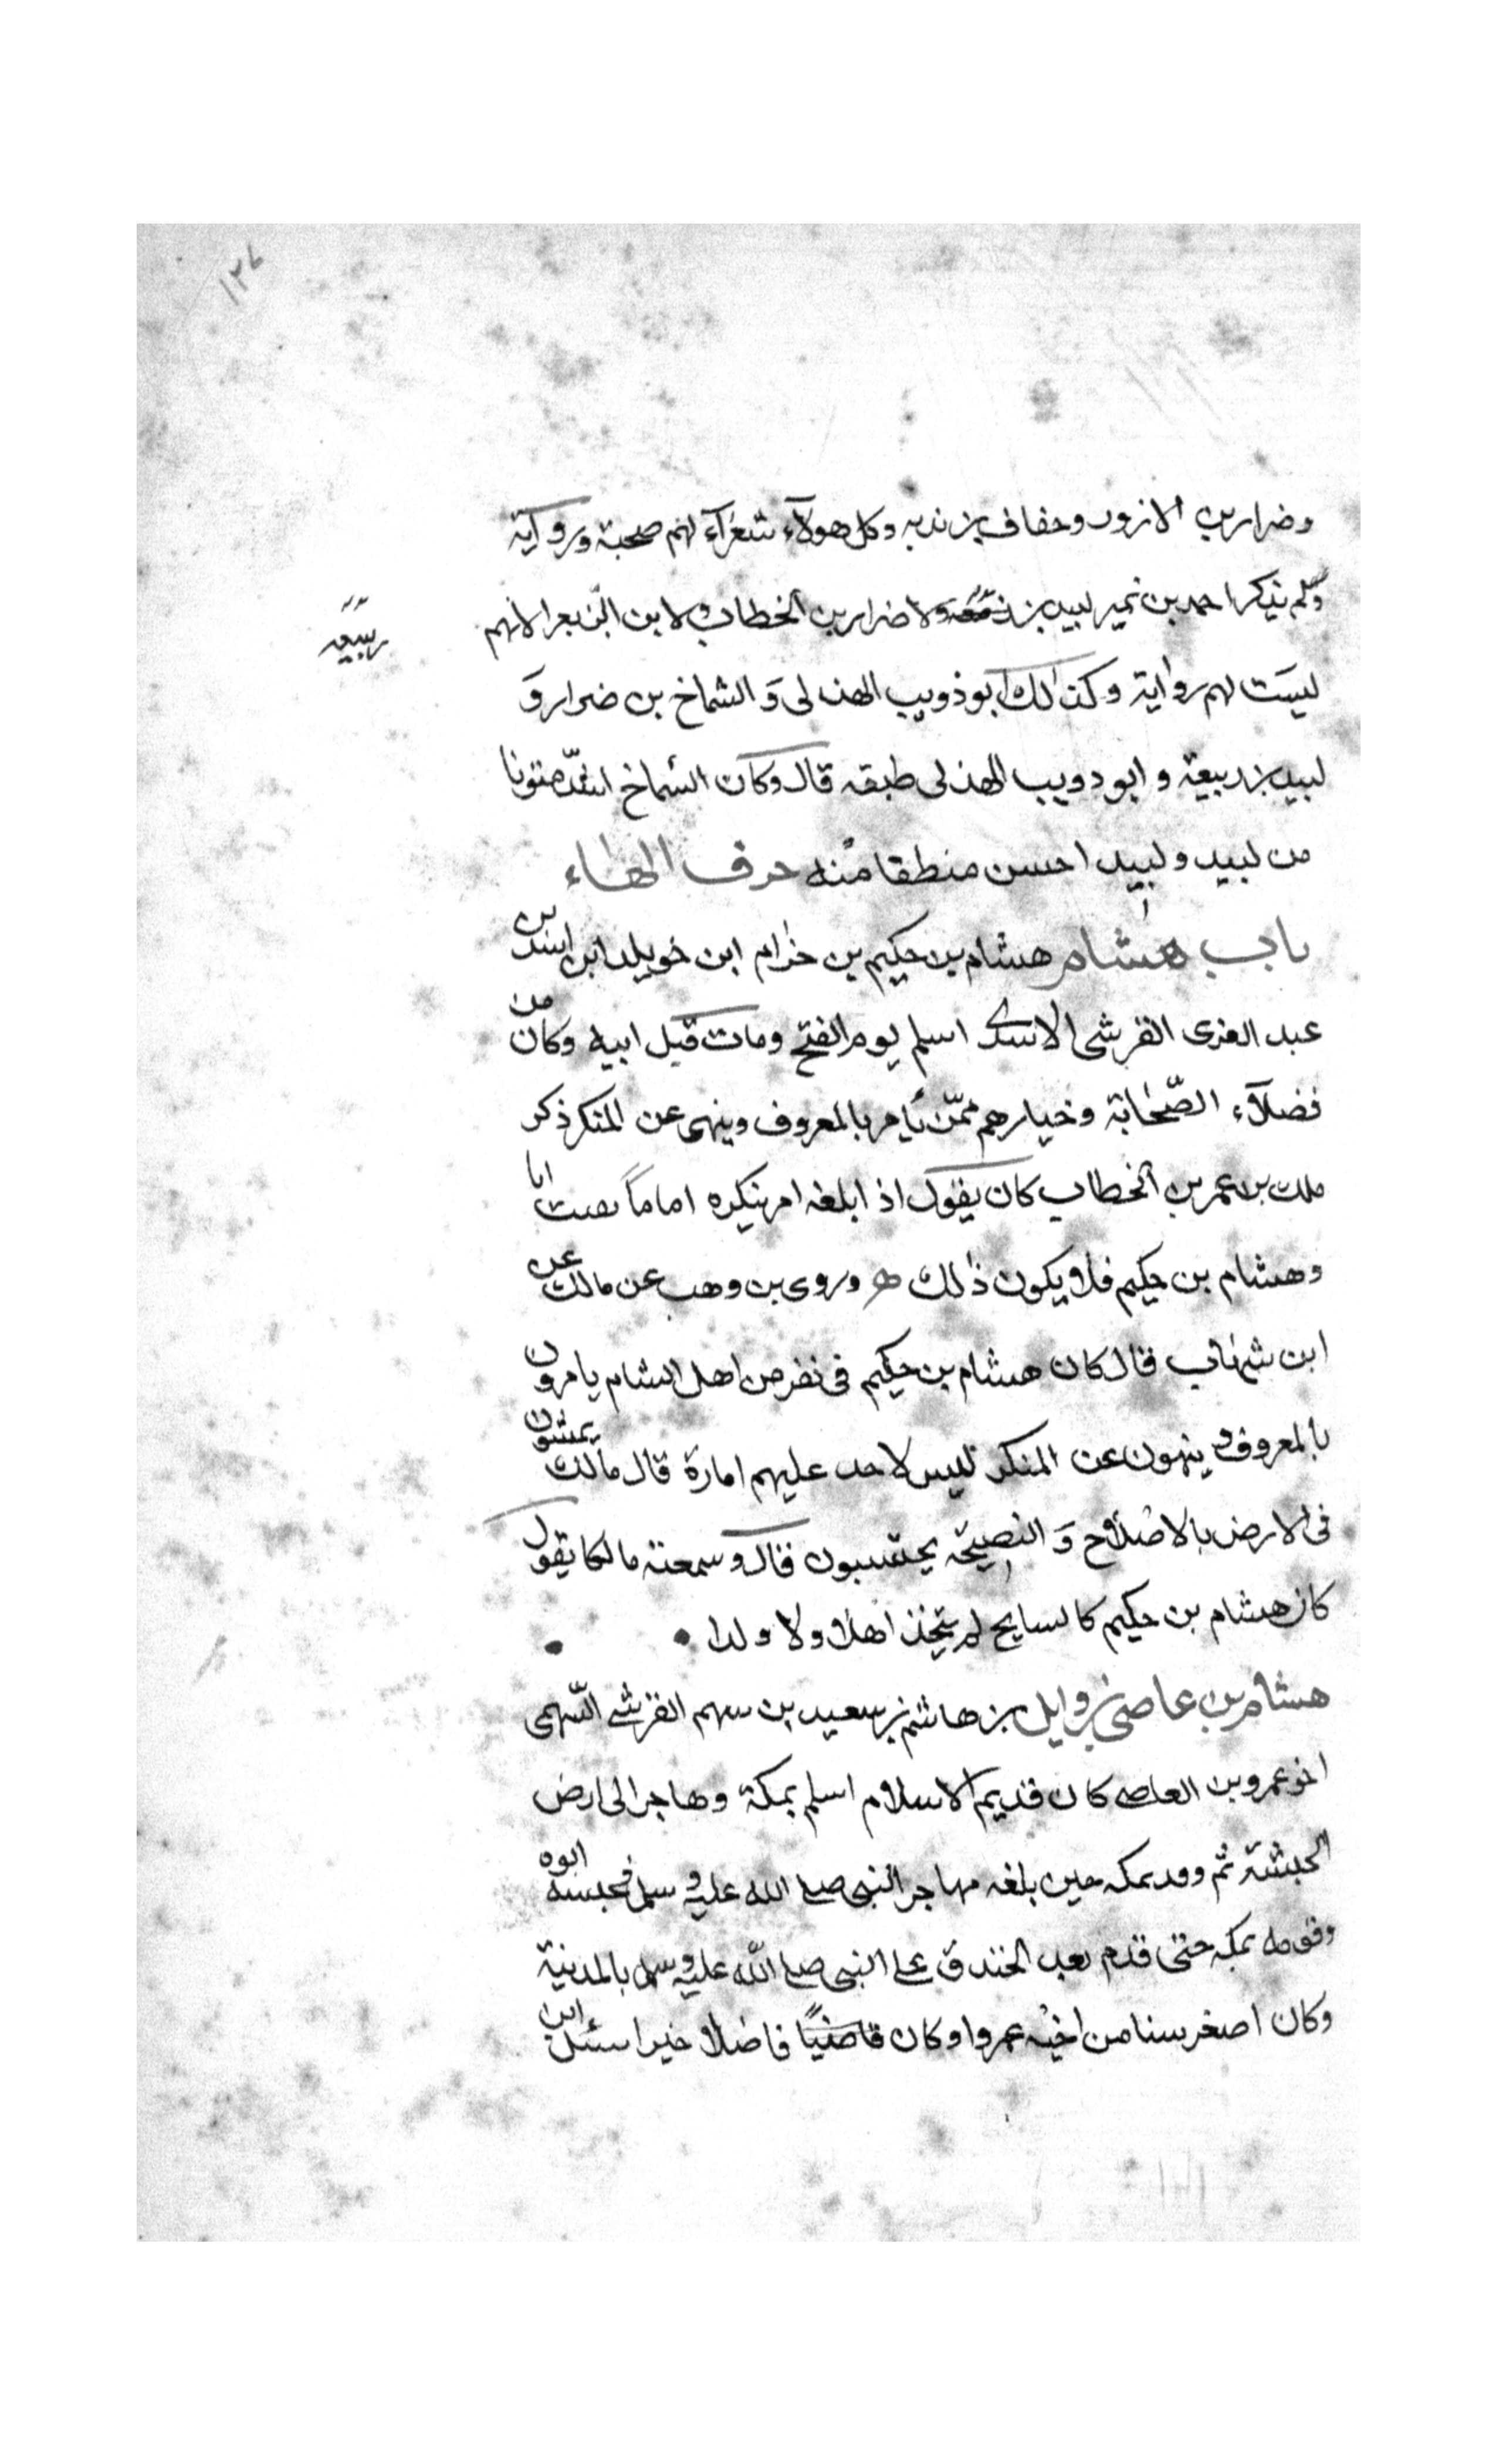 ١٢٧
وضرار بن الازور وخفاف بن ندبه وكل هولآء شعرآء لهم صحبة وروآية
ولم يذكر احمد بن زهير لبيد بن ولا ضرار بن الخطاب ولا ابن الزبعرا لانهم
ربيعه
ليست لهم رواية وكذالك ابو ذويب الهذلى وَ الشماخ بن ضرار وَ
لبيد بن ربيعة و ابو دويب الهذلى طبقه قال وكان الشماخ اشدّ متونا
من لبيد ولبيد احسن منطقا منه حرف الهاء
باب هشام هشام بن حكيم بن حزام ابن خويلد ابن اسد بن
عبد العزى القرشى الاسدى اسلم يوم الفتح ومات قبل ابيه وكان من
فضلآء الصّحابة وخيارهم ممّن يأمر بالمعروف وينهى عن المنكر ذكر
ملك بن عمر بن الخطاب كان يقول اذا بلغه امر ينكره اماماً بقيت انا
وهشام بن حكيم فلا يكون ذالك ۞ وروى بن وهب عن مالك عن
ابن شهاب قال كان هشام بن حكيم فى نفر من اهل الشام يامرون
بالمعروف وينهون عن المنكر ليس لاحد عليهم امارة قال مالك يمشون
فى الارض بالاصلاح وَ النصيحة يحتسبون قال وسمعت مالكا يقول
كان هشام بن حكيم كالسايح لم يتخذ اهلا ولا ولدا •    •
هشام بن عاصى بن وايل بن هاشم بن سعيد بن سهم القرشى السّهمى
اخو عمرو بن العاصى كان قديم الاسلام اسلم بمكة وهاجر الى ارض
الحبشة ثم وقدم مكه حين بلغه مهاجر النبى صلى الله عليه وسلم فحبسه ابوه
وقومه بمكه حتى قدم بعد الخندق على النبى صلى الله عليه وسلم بالمدينة
وكان اصغر سنا من اخيه عمروا وكان قاضيًا فاضلا خيرا سئل ابن